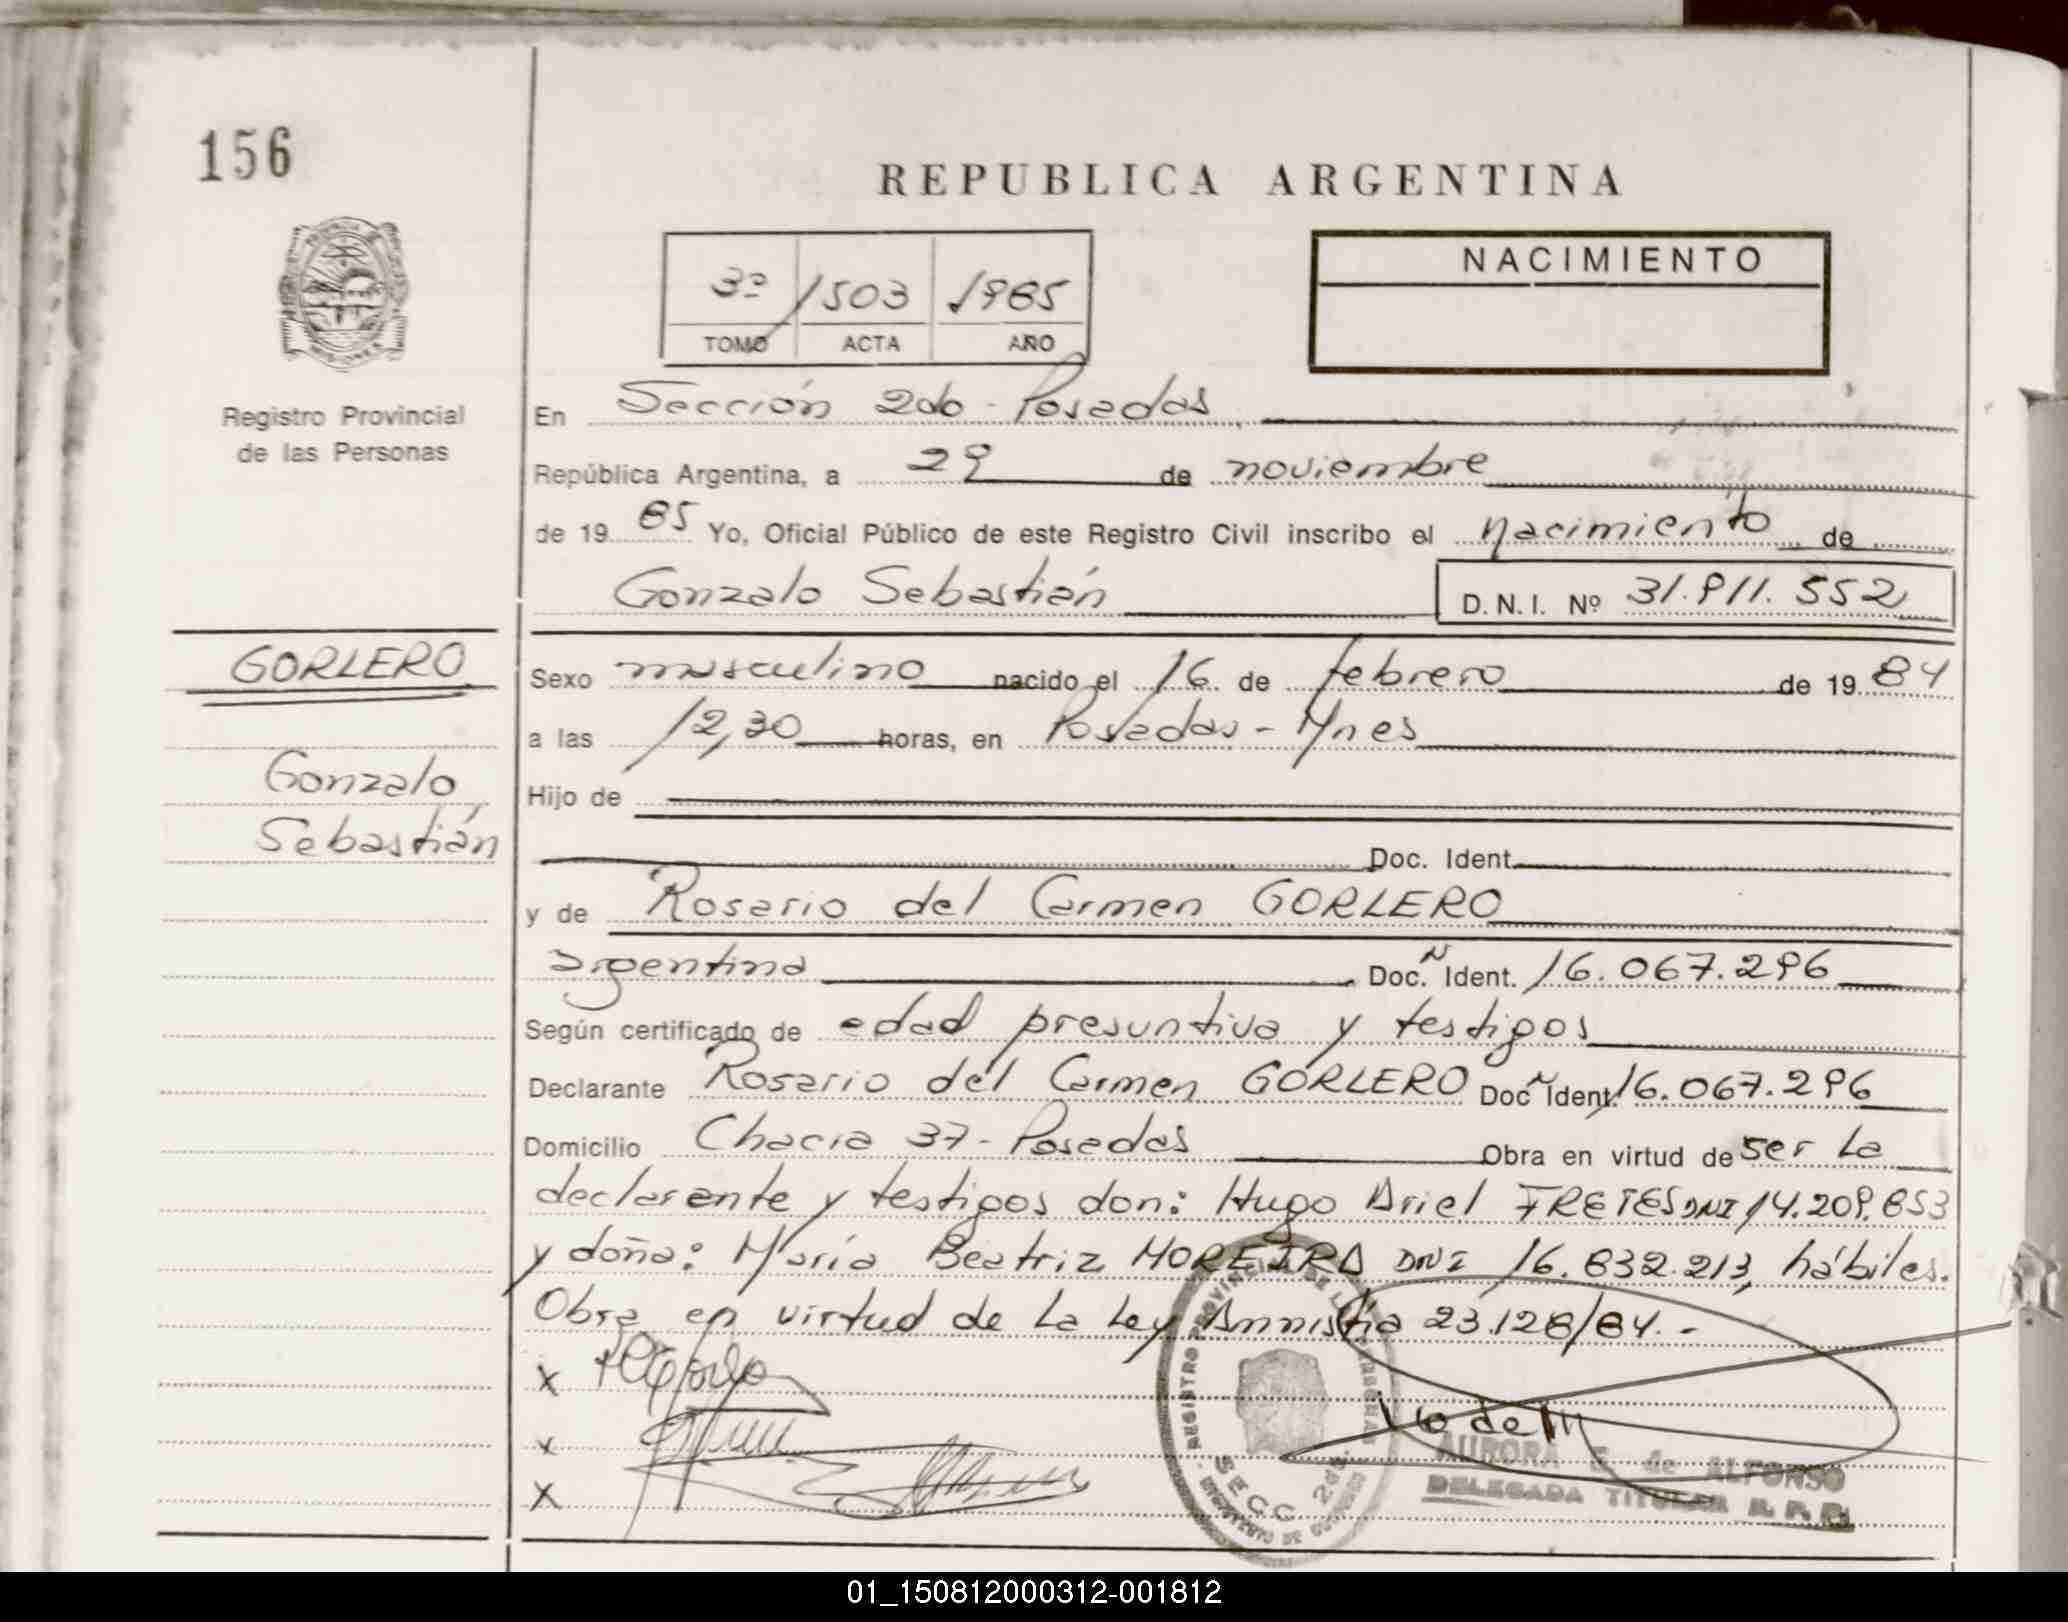 156
REPUBLICA ARGENTINA
3º 1503 1985
TOMO ACTA AÑO
NACIMIENTO
Registro Provincial
de las Personas
En Sección 2da - Posadas
República Argentina, a 29 de noviembre
de 19 85 Yo, Oficial Público de este Registro Civil inscribo el nacimiento de
Gonzalo Sebastián D.N.I. Nº 31.911.552
GORLERO
Gonzalo
Sebastián
Sexo masculino nacido el 16 de febrero de 19 84
a las 12,30 horas, en Posadas - Mnes
Hijo de
Doc. Ident.
y de Rosario del Carmen GORLERO
argentina Doc. Ident. 16.067.296
Según certificado de edad presuntiva y testigos
Declarante Rosario del Carmen GORLERO Doc Ident. 16.067.296
Domicilio Chacra 37 - Posadas Obra en virtud de ser la
declarante y testigos don: Hugo Ariel FRETES DNI 14.209.853
y doña: María Beatriz MOREIRA DNI 16.832.213, hábiles.
Obra en virtud de la Ley Amnistia 23.128/84.-
x
x
x
REGISTRO PROVINCIAL DE LAS PERSONAS
SECC 2da.
AURORA E. de ALFONSO
DELEGADA TITULAR R. P. P.
01_150812000312-001812